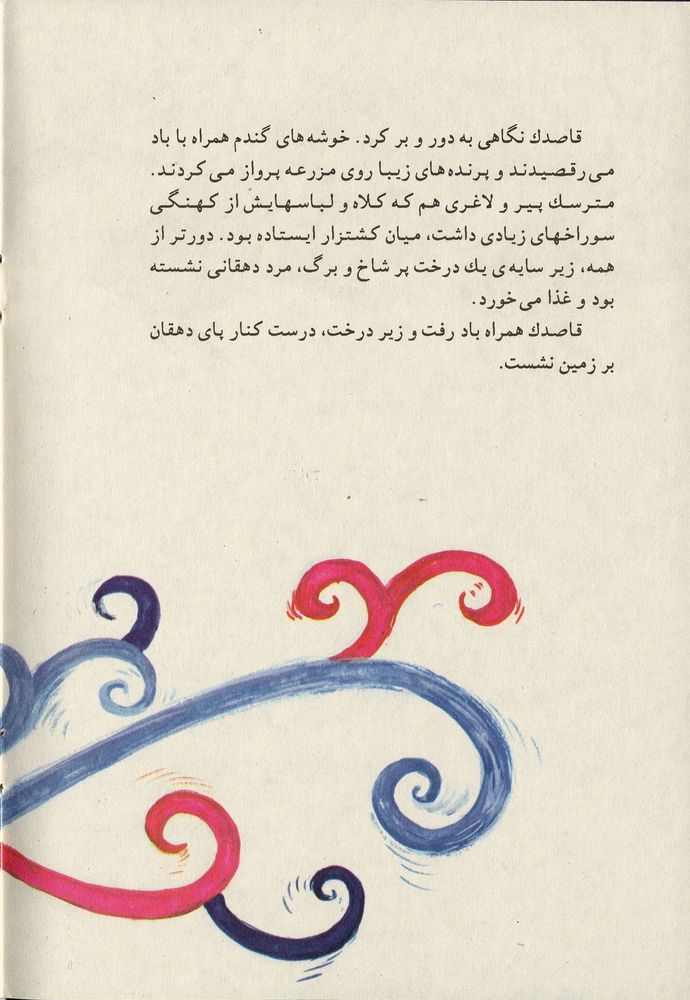 قاصدك نگاهی به دور و بر کرد. خوشه‌های گندم همراه با باد
می‌رقصیدند و پرنده‌های زیبا روی مزرعه پرواز می‌کردند.
مترسك پیر و لاغری هم که کلاه و لباسهایش از کهنگی
سوراخهای زیادی داشت، میان کشتزار ایستاده بود. دورتر از
همه، زیر سایه‌ی یك درخت پر شاخ و برگ، مرد دهقانی نشسته
بود و غذا می‌خورد.
قاصدك همراه باد رفت و زیر درخت، درست کنار پای دهقان
بر زمین نشست.